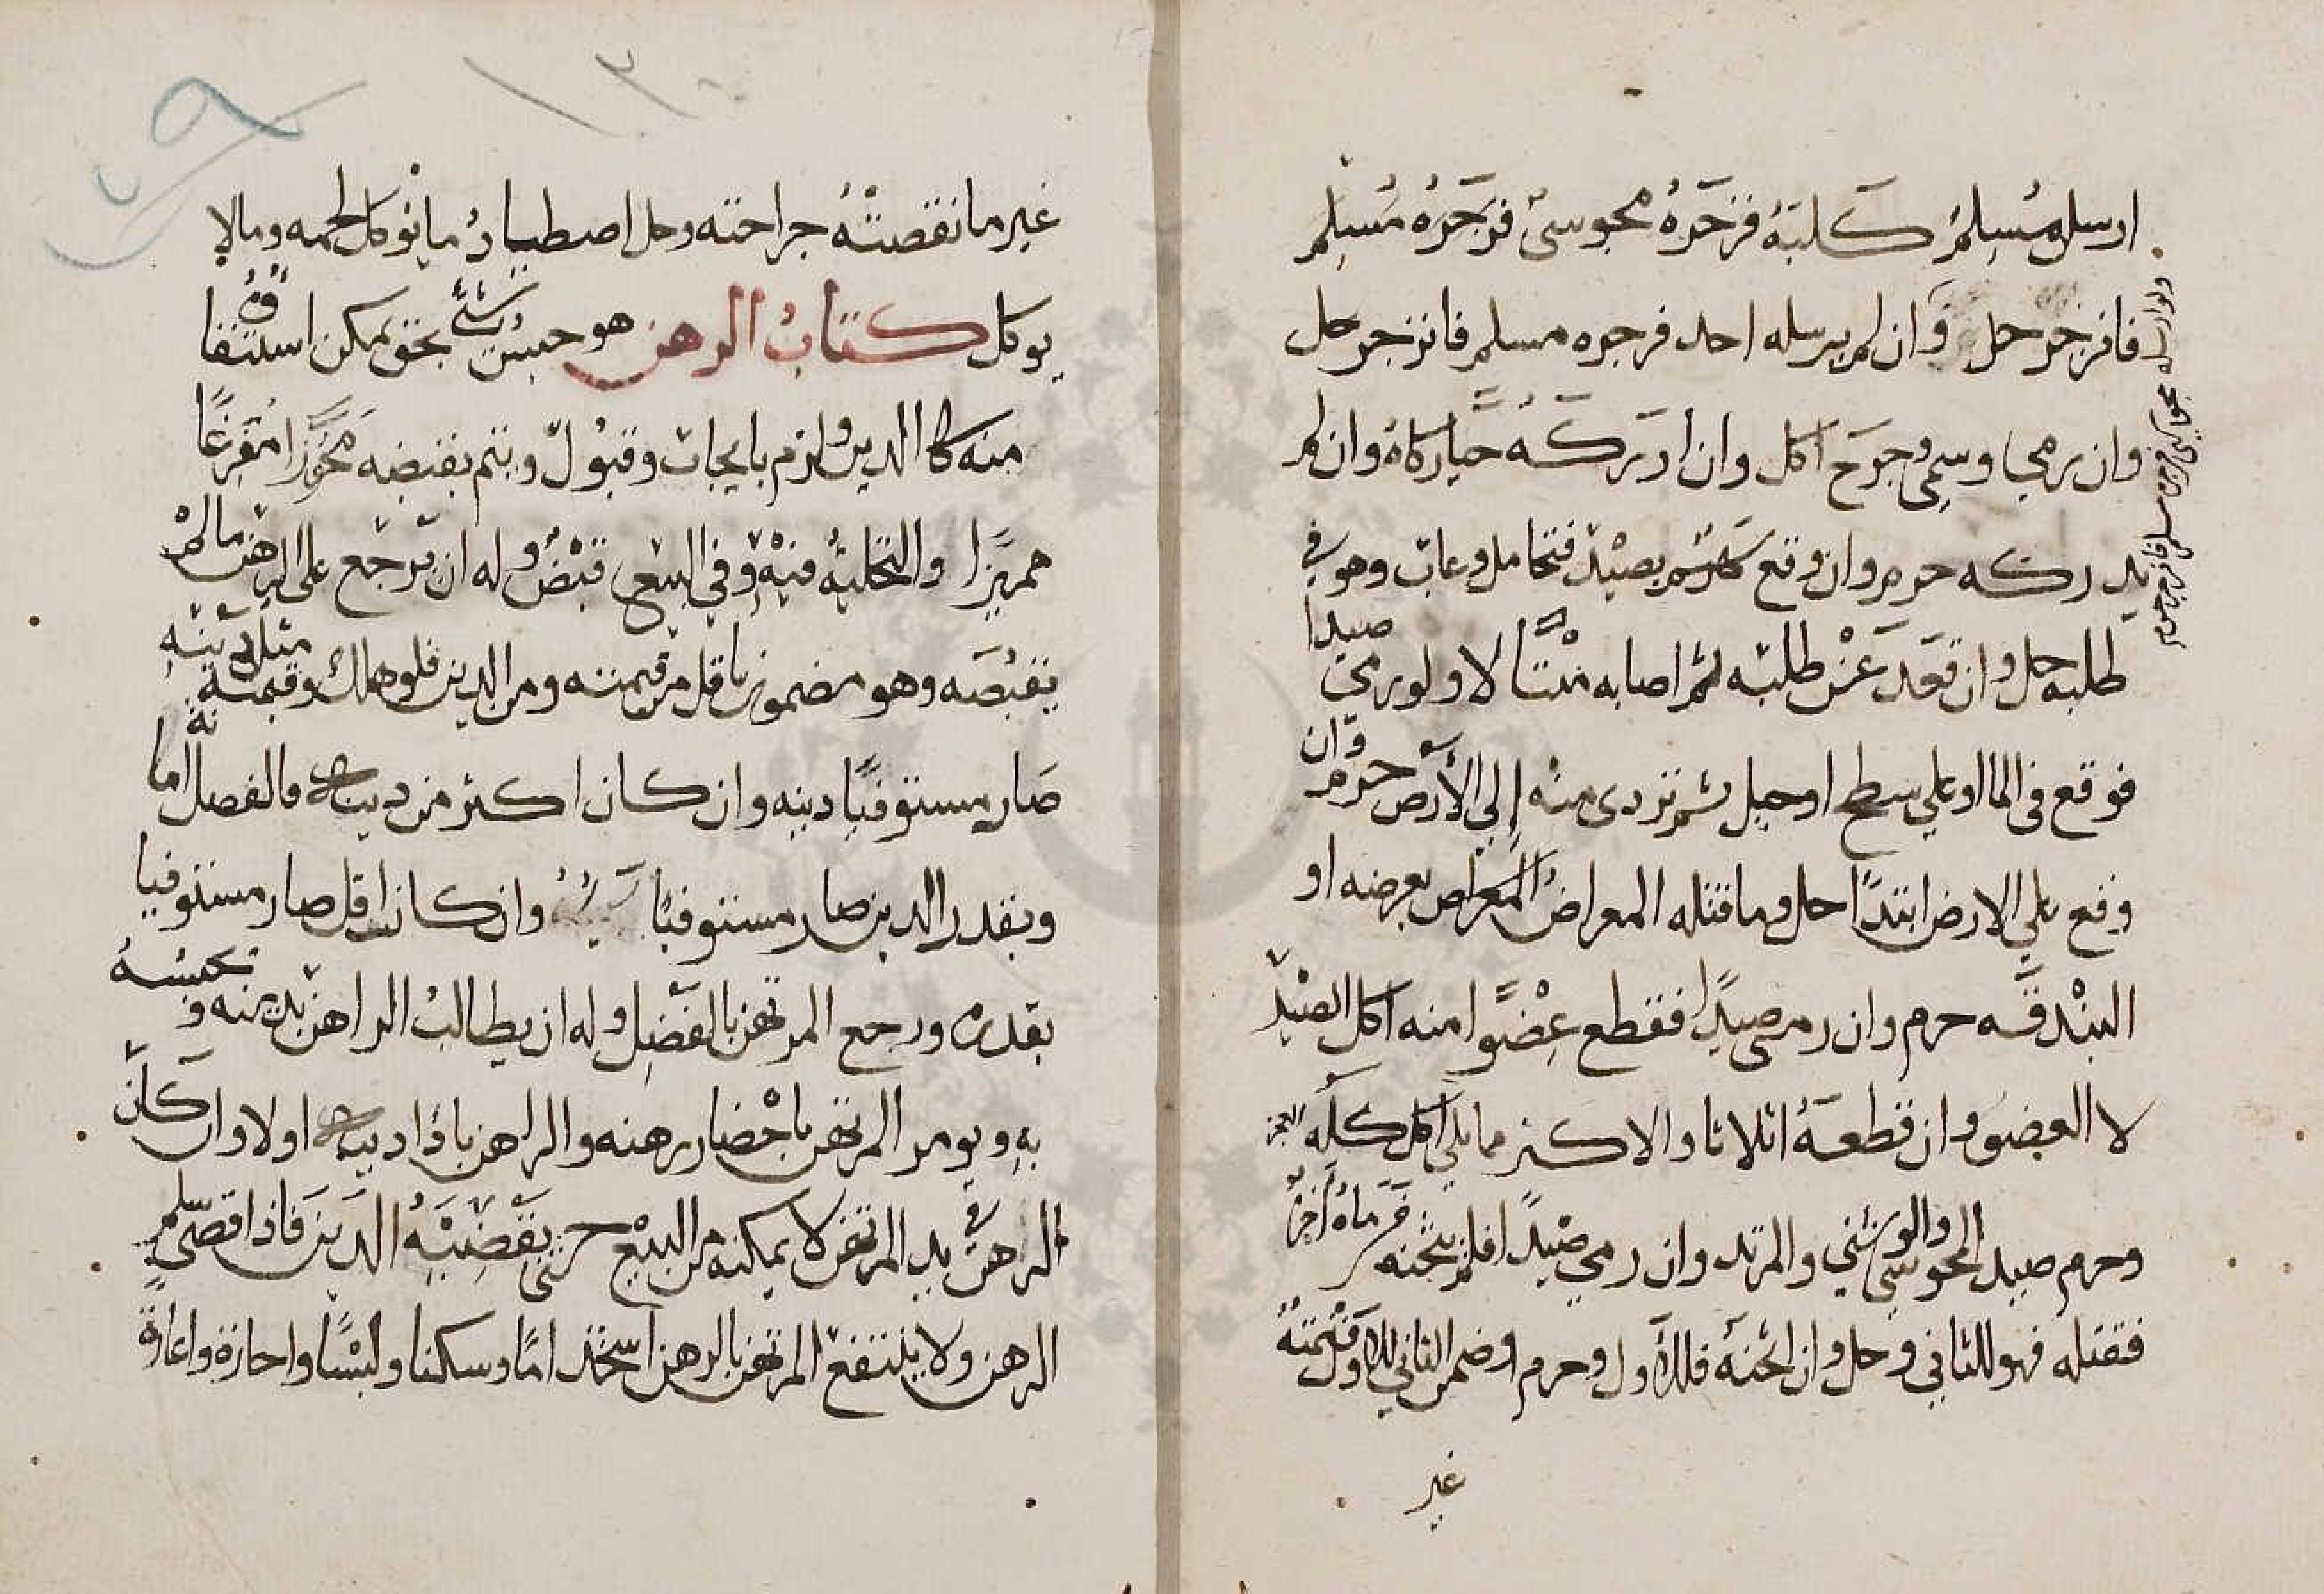 ارسل مسلم كلبه فزجره مجوسى فزجره مسلم
فانزجر حل وان لم يرسله احد فزجره مسلم فانزجر حل
وان رمى وسمى وجرح اكل وان ادركه حيا ذكاه وان لم
يدركه حرم وان وقع سهم بصيد فتحامل وغاب وهو في
طلبه حل وان قعد عن طلبه ثم اصابه ميتا لا ولو رمى صيدا
فوقع في الما او على سطح او جبل ثم تردى منه إلى الأرض حرم وان
وقع على الارض ابتدا حل وما قتله المعراض بعرضه او
البندقه حرم وان رمى صيدا فقطع عضوا منه اكل الصيد
لا العضو وان قطعه اثلاثا والاكثر مما يلي العجز اكل كله
وحرم صيد المجوسى والوثني والمرتد وان رمى صيدا فلم يثخنه فرماه آخر
فقتله فهو للثاني وحل وان اثخنه فللأول وحرم وضمن الثاني للاول قيمته
غير
ولو ارسله مجوسي فزجره مسلم فانزجر حرم
١٣٠
غير ما نقصته جراحته وحل اصطياد ما يوكل لحمه وما لا
يوكل كتاب الرهن هو حبس شئ بحق يمكن استيفاؤه
منه كالدين ولزم بايجاب وقبول ويتم بقبضه محوزا مفرغا
مميزا والتخلية فيه وفي البيع قبض وله ان يرجع على الرهن ما لم
يقبضه وهو مضمون باقل من قيمته ومن الدين فلو هلك وقيمته مثل دينه
صار مستوفيا دينه وان كان اكثر من دينه فالفضل امانة
وبقدر الدين صار مستوفيا وان كان اقل صار مستوفيا
بقدره ورجع المرتهن بالفضل وله ان يطالب الراهن بدينه ويحبسه
به ويومر المرتهن باحضار رهنه والراهن باداء دينه اولا وان كان
الرهن في يد المرتهن لا يمكنه من البيع حتى يقضيه الدين فاذا قضى سلم
الرهن ولا ينتفع المرتهن بالرهن استخداما وسكنا ولبسا واجازة واعارة